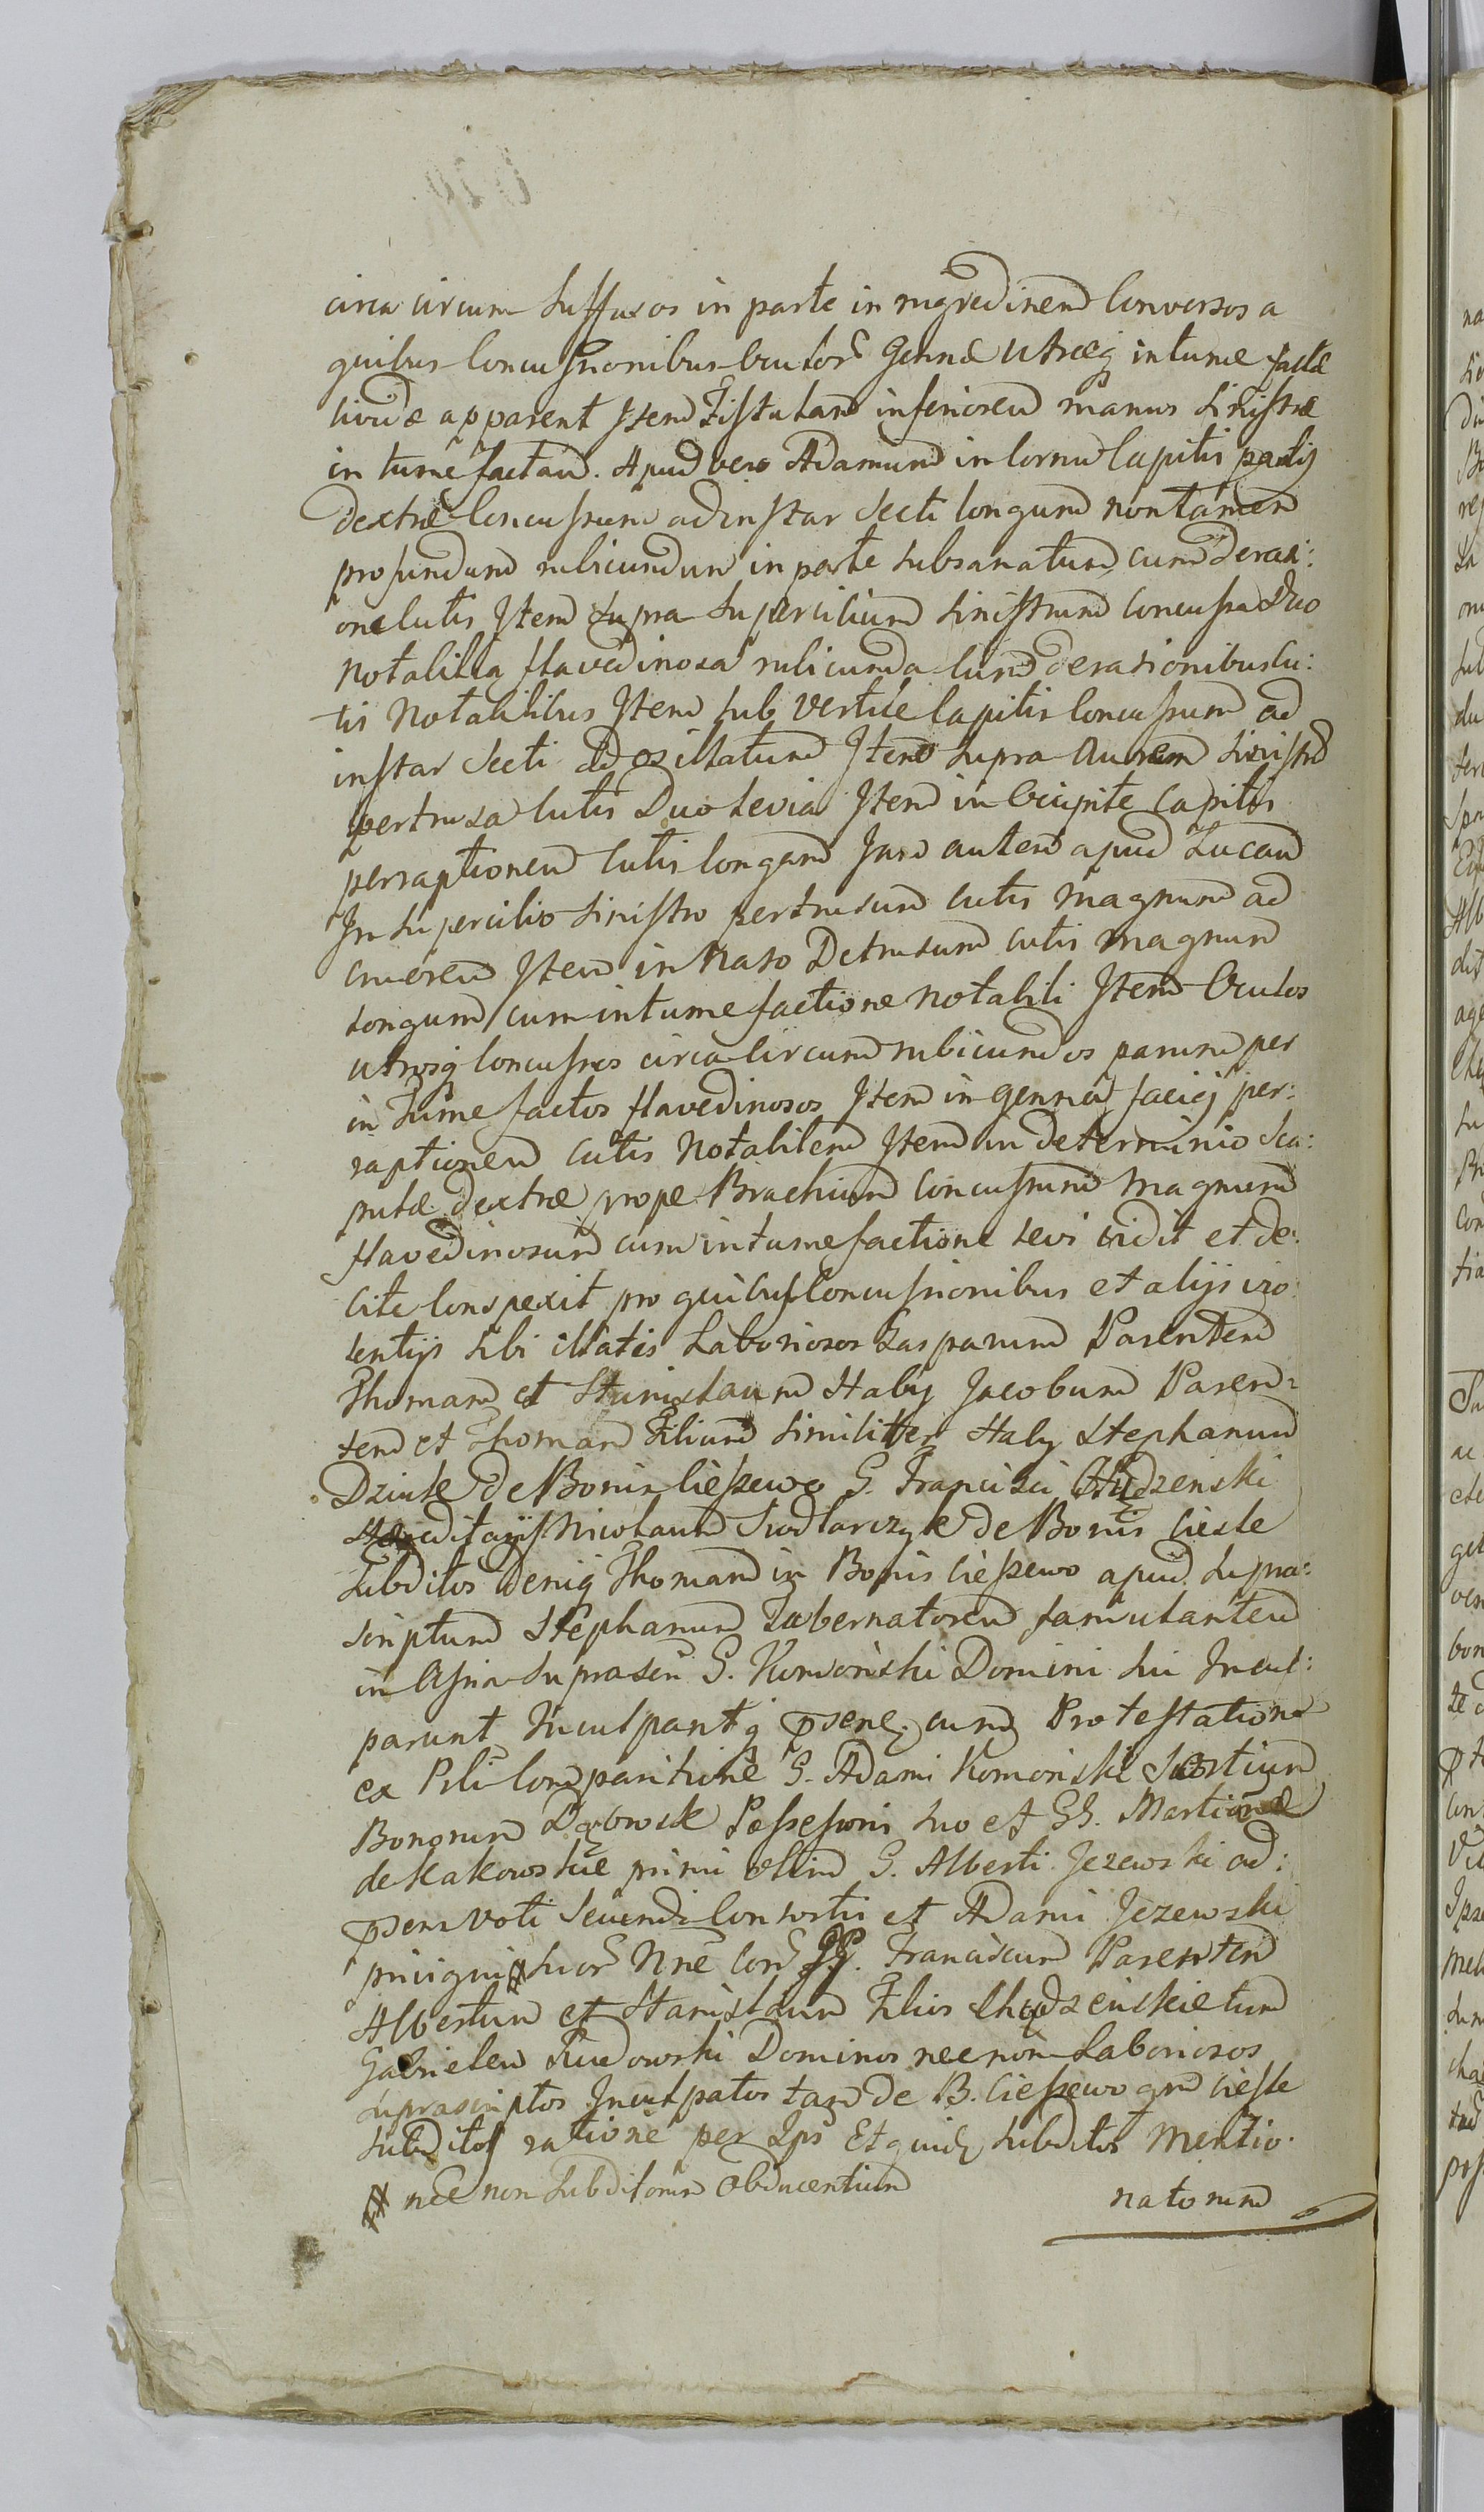 circa circum suffusos in parte in nigredinem Conversos a
quibus Concussionibus Oculor Gennæ utræq intume factæ
lividæ apparent Jtem Fistulam inferiorem manus Sinistræ
in tume factam. Apud vero Adamum in Cornu Capitis partis
dextræ Concussum ad instar Secti longum non tamen
profundum rubicundum in parte subsanatum cum derasi:
one Cutis Jtem Supra Supercilium Sinistrum Concussa Duo
Notabilia flavedinosa rubicunda Cum derasionibus Cu:
tis Notabilibus Jtem sub Vertice Capitis Concussum ad
instar Secti ad os illatum Jtem Supra Aurem Sinistr
pertrusa Cutis Duo Levia Jtem in Occipite Capitis
perraptionem Cutis longam Jam autem apud Lucam
Jn Supercilio Sinistro pertrusum Cutis Magnum ad
cruorem Jtem in Naso Detrusum Cutis Magnum
Longum cum intume factione Notabili Jtem Oculos
utrosq Concussos circa Circum rubicundos parum per
in Tume factos flavedinosos Jtem in genna faciei per:
raptionem Cutis Notabilem Jtem in determinio Sca:
pulæ dextræ prope Brachium Concussum Magnum
flavedinosum cum intume factione Levi vidit et de:
bite Conspexit pro quibus Concussionibus et alijs vio:
lentijs sibi illatis Laboriosos Gasparum Parentem
Thomam et Stanislaum Haby Jacobum Paren=
tem et Thomam Filium Similiter Haby Stephanum
Dziuk de Bonis Cieszewo G. Francisci Chudzenski
Hæreditarijs Nicolaum Srodlarczyk de Bonis Ciesle
Subditos deniq Thomam in Bonis Cieszewo apud Supra:
scriptum Stephanum Tabernatorem famulantem
in Assia Suprascri G. Komorski Domini Sui Jncul:
parunt Jnculpantq psene. cum Protestatione
ex Psti Comparitione G. Adami Komorski Sortium
Bonorum Dąbrosk Possessoris Suo et GG. Martiannæ
de Kakowskie primi olim G. Alberti Jezewski ad:
psens voti Secundi Consortis et Adami Jezewski
privigni # Suor Nne Con GG. Franciscum Parentem
Albertum et Stanislaum Filios Chudzenskie tum
Gabrielem Rudowski Dominos necnon Laboriosos
Suprascriptos Jnculpatos tam de B. Cieszewo qm Ciesle
Subditos ratione per Ips Et quidem Subditos Mentio.
# nec non Subditorum Obducentium
natorum